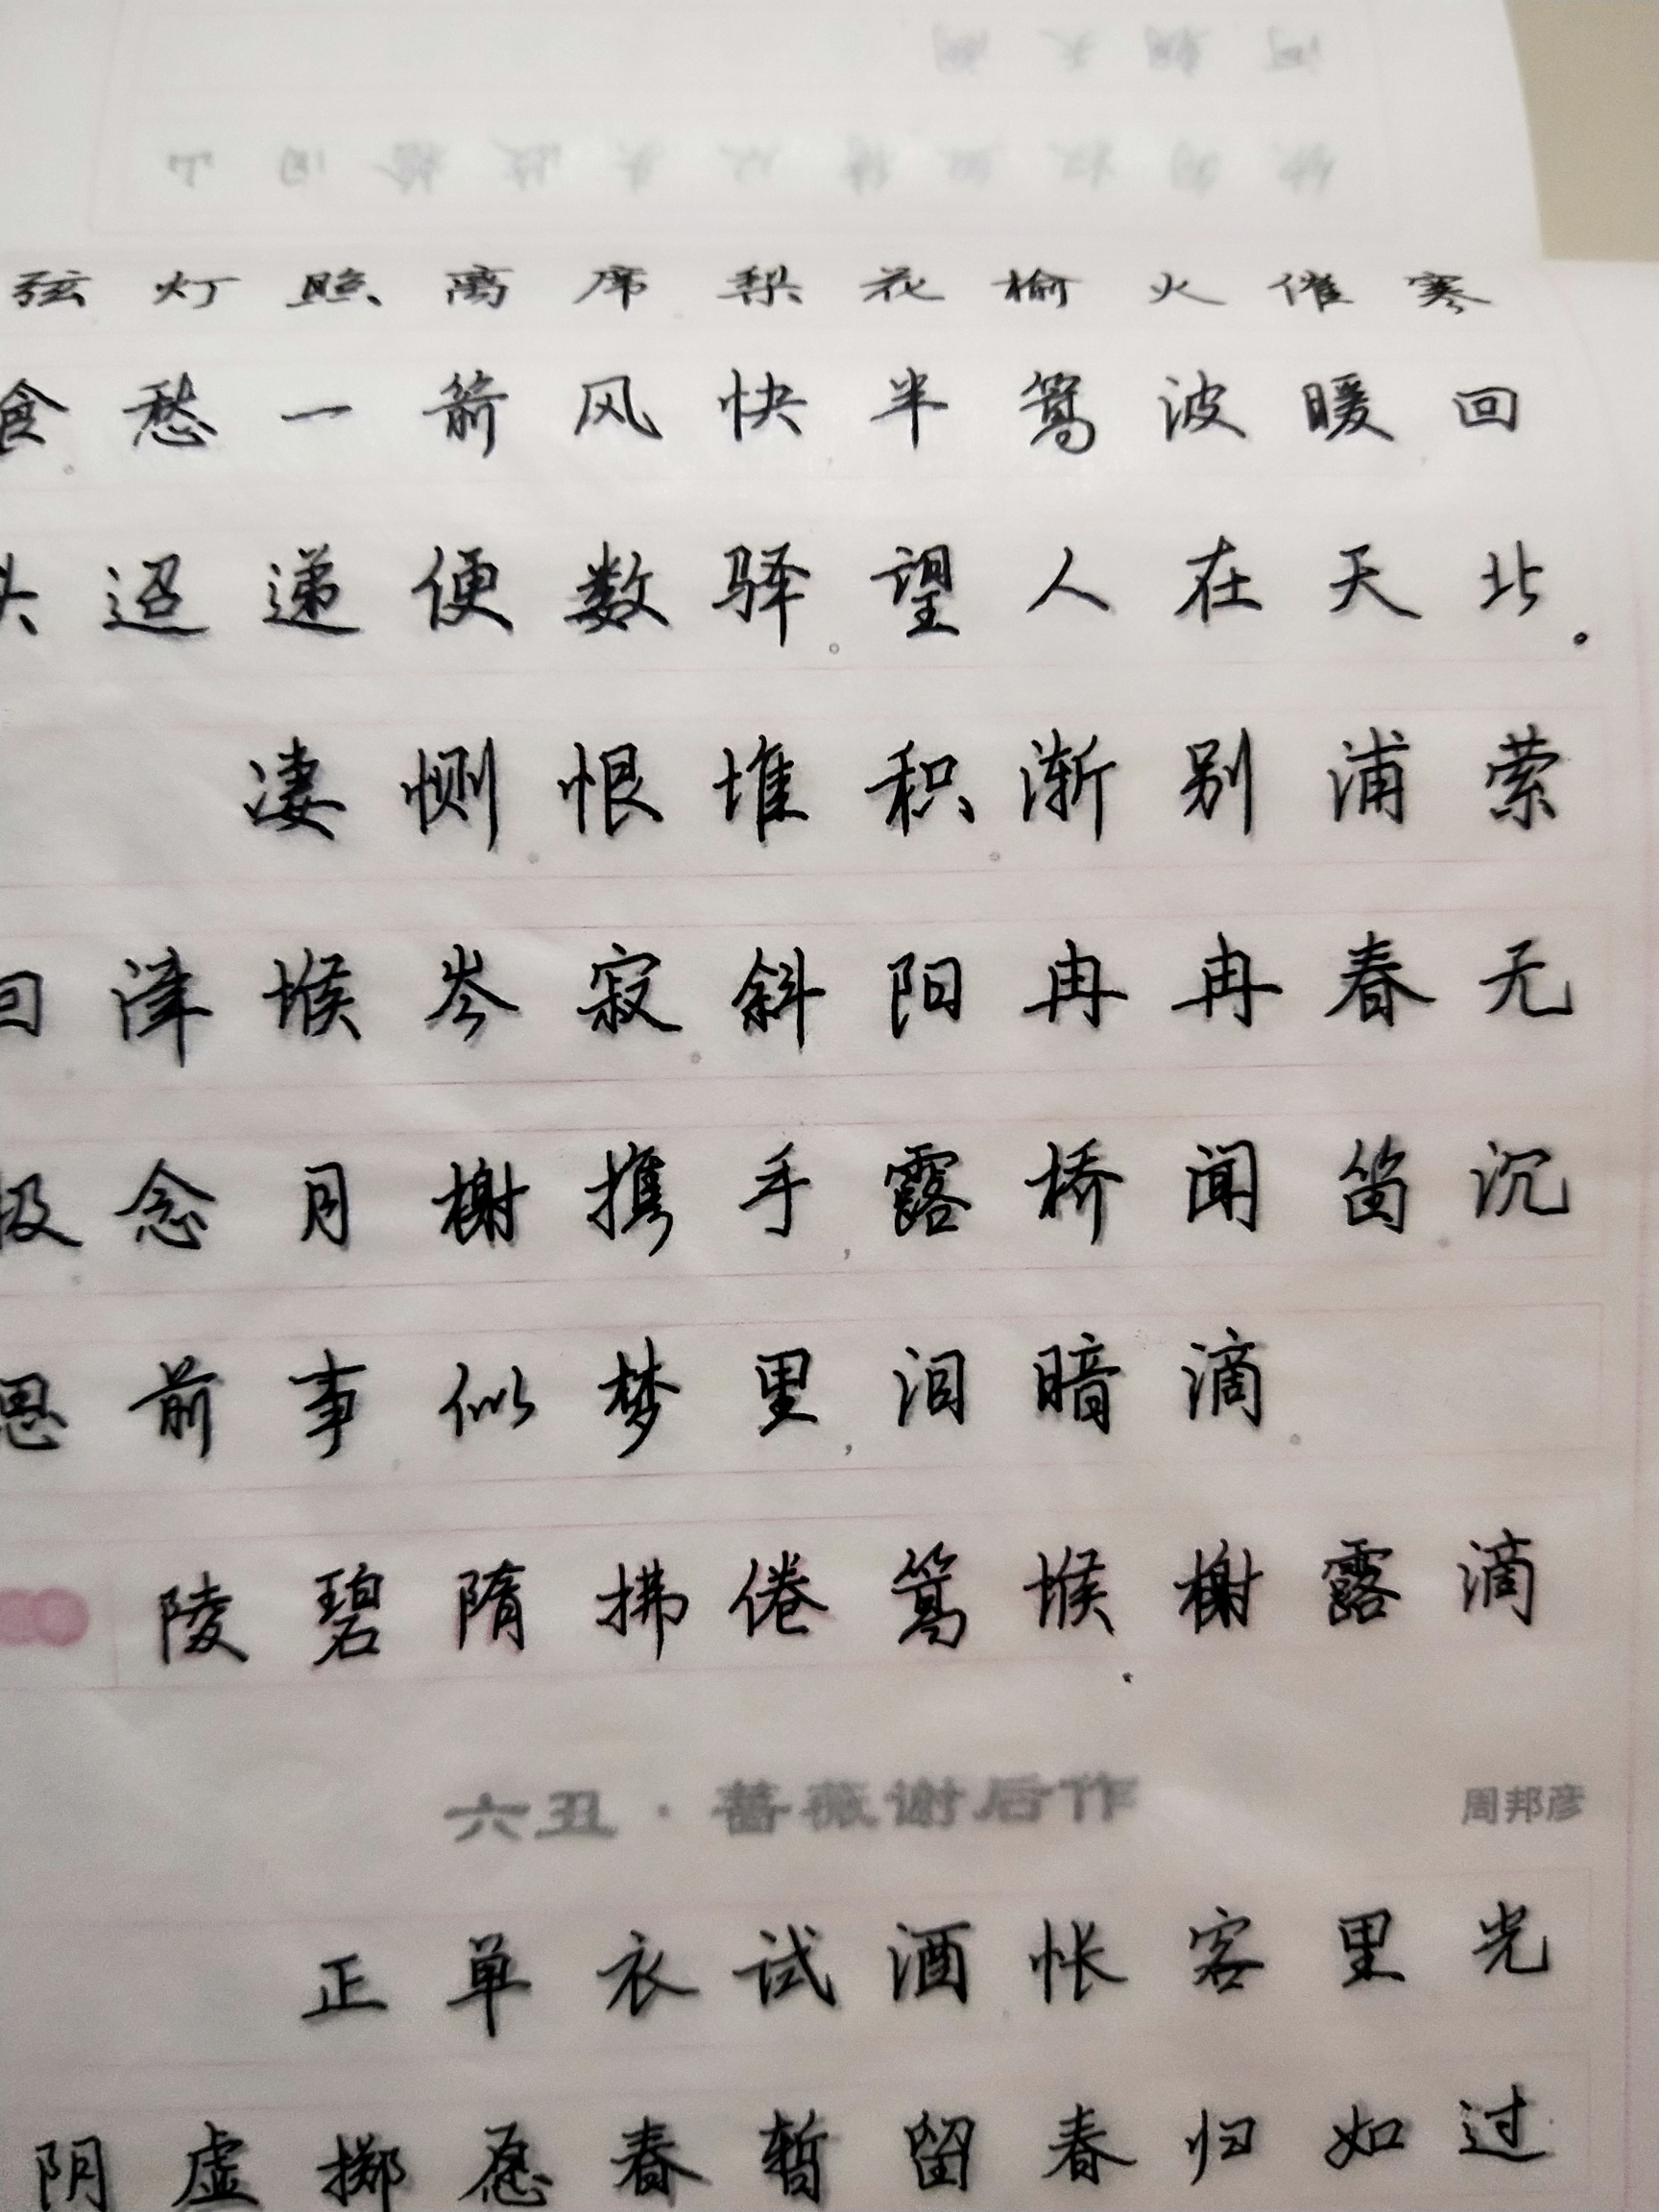 弦灯照离席梨花榆火催寒
食愁一箭风快半篙波暖回
头迢递便数驿。望人在天北。
凄恻恨堆积。渐别浦萦
回津堠岑寂。斜阳冉冉春无
极念月榭携手,露桥闻笛。沉
思前事似梦里,泪暗滴。
陵碧隋拂倦篙堠榭露滴
六丑·蔷薇谢后作 周邦彦
正单衣试酒怅客里光
阴虚掷愿春暂留春归如过